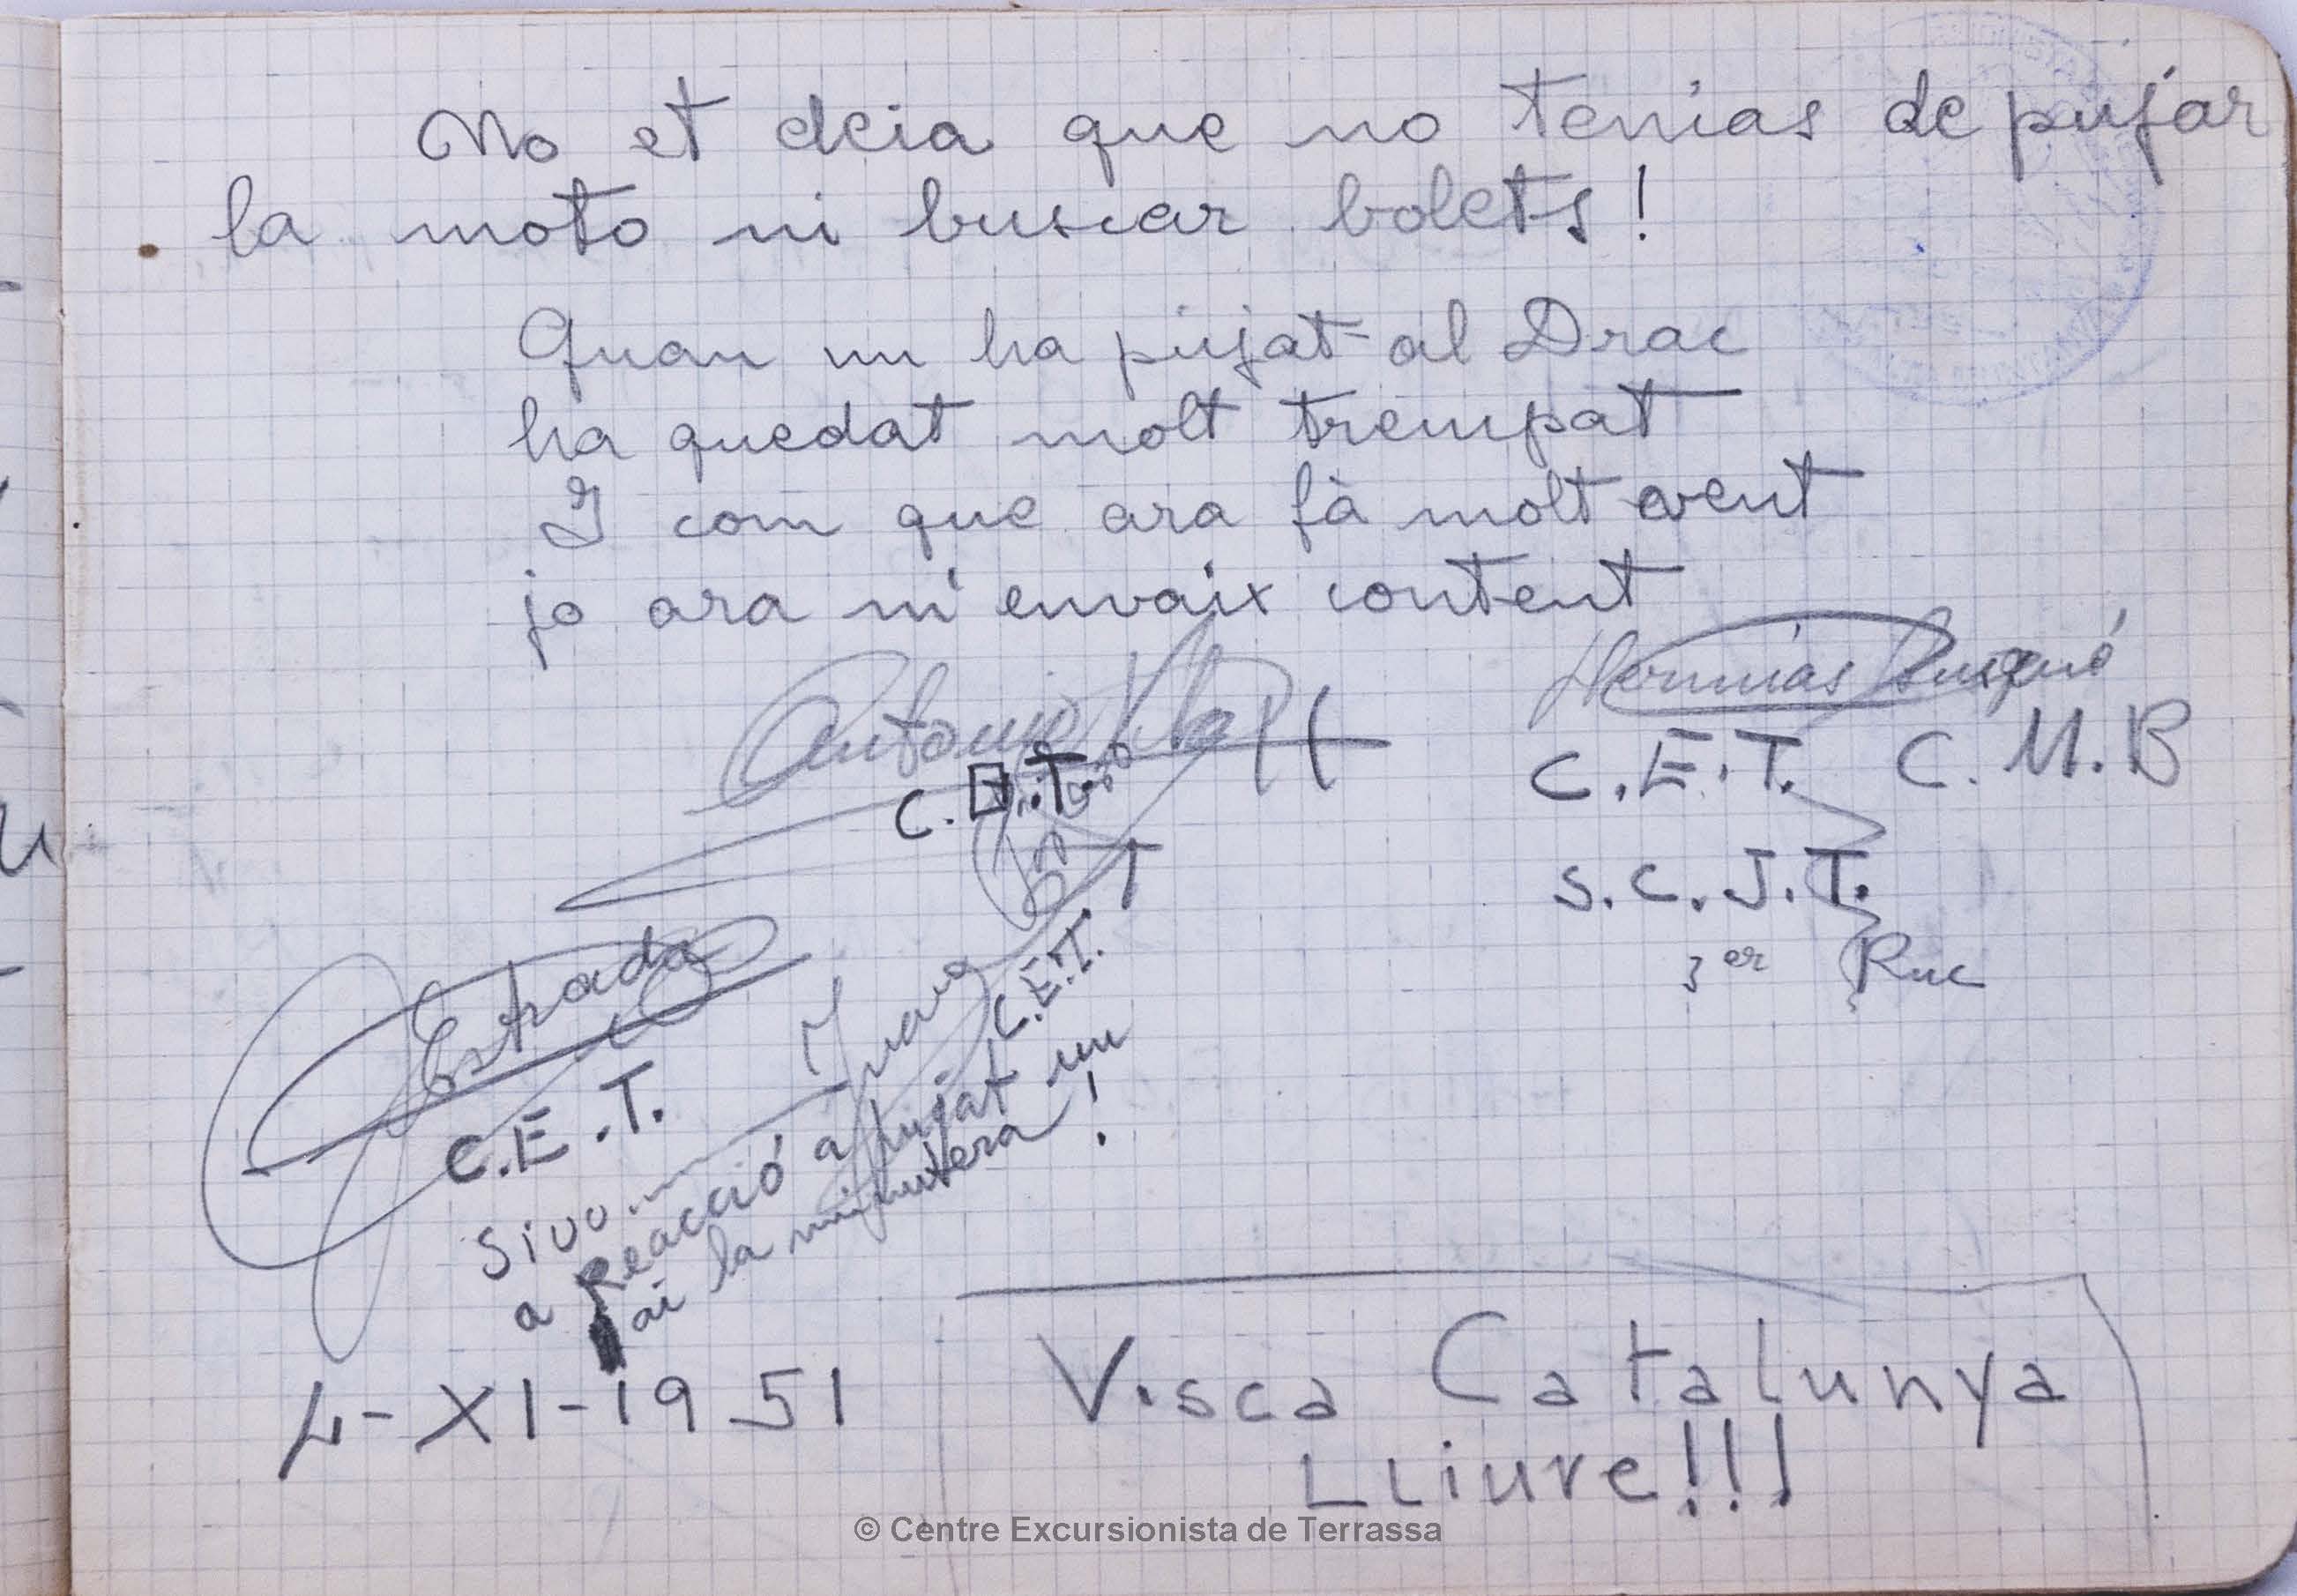 No et deia que no tenias de pujar
la moto ni buscar bolets!
Quan un ha pujat al Drac
ha quedat molt trempat
I com que ara fà molt vent
jo ara m'envaix content
Antonio Vila
Hermias Busqué
C.E.T. C.M.B
C.E.T.
S.C.J.T.
3er Ruc
Estrada
C.E.T.
C.E.T.
a Reacció a pujat un
ai la minutera!
4-XI-1951
Visca Catalunya
LLiure!!!
© Centre Excursionista de Terrassa